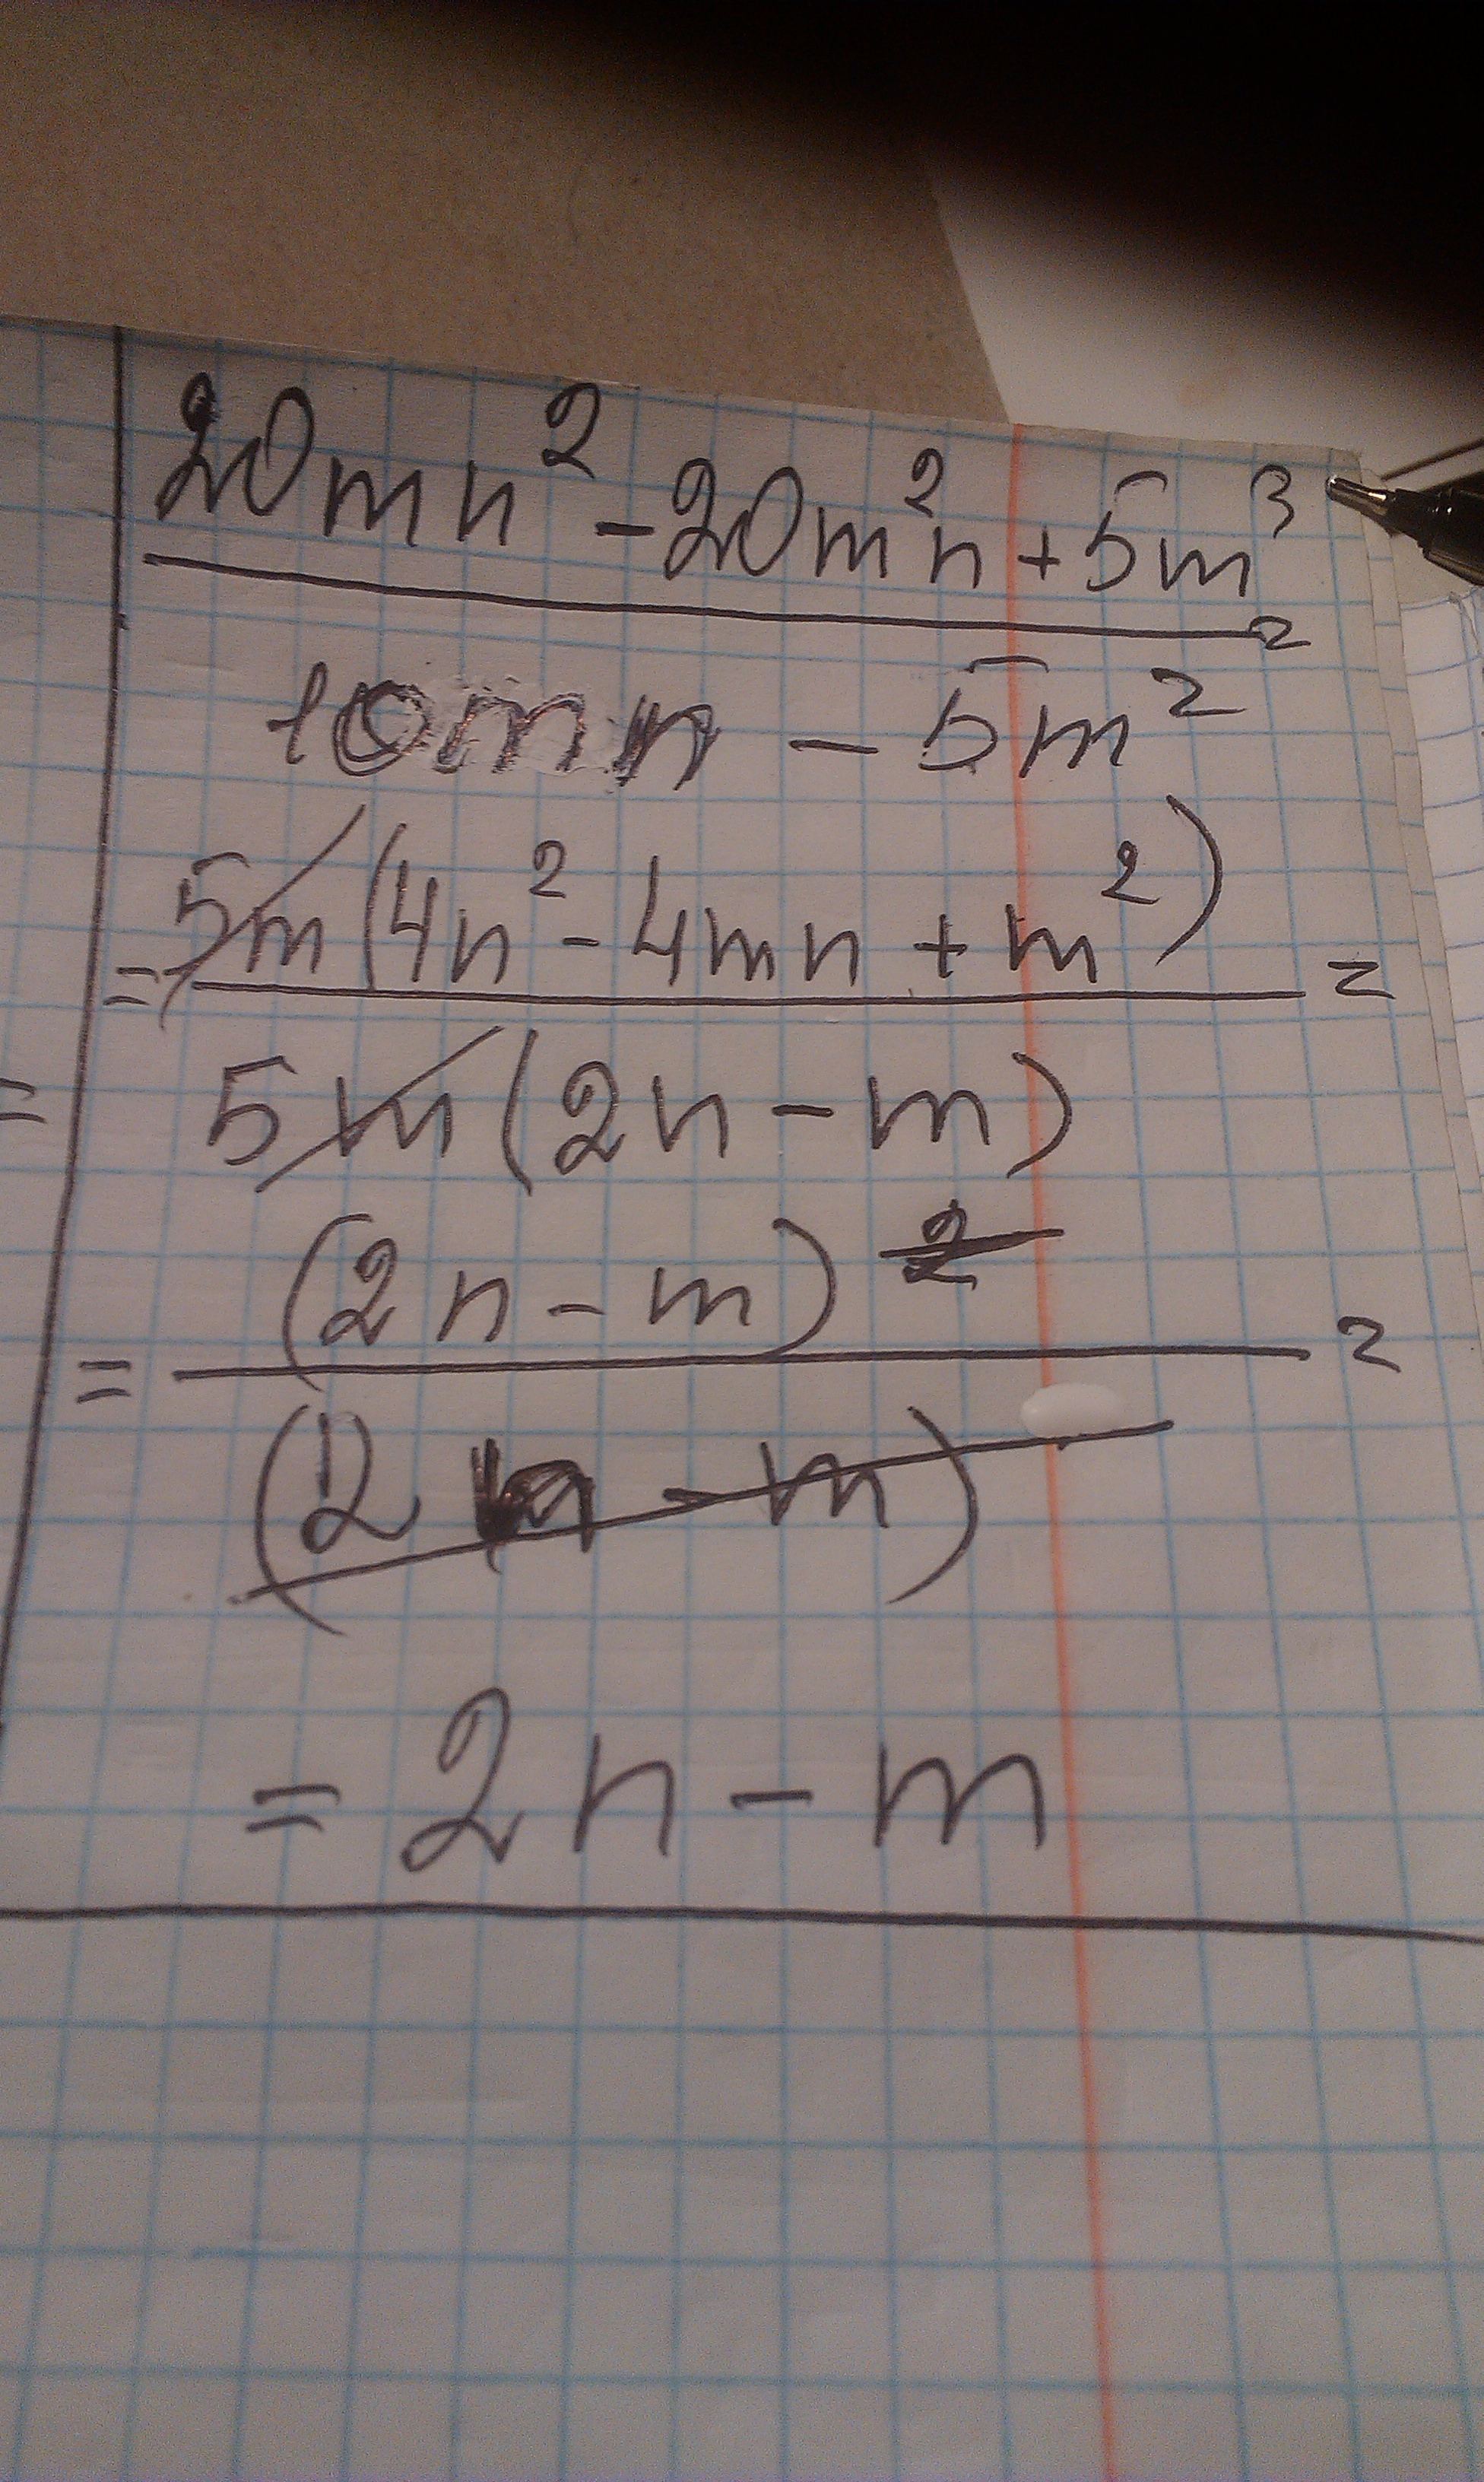 20mn² - 20m²n + 5m³ =
10mn - 5m²
= 5m(4n² - 4mn + m²) =
5m(2n - m)
=
= (2n - m)² =
(2n - m)
= 2n - m